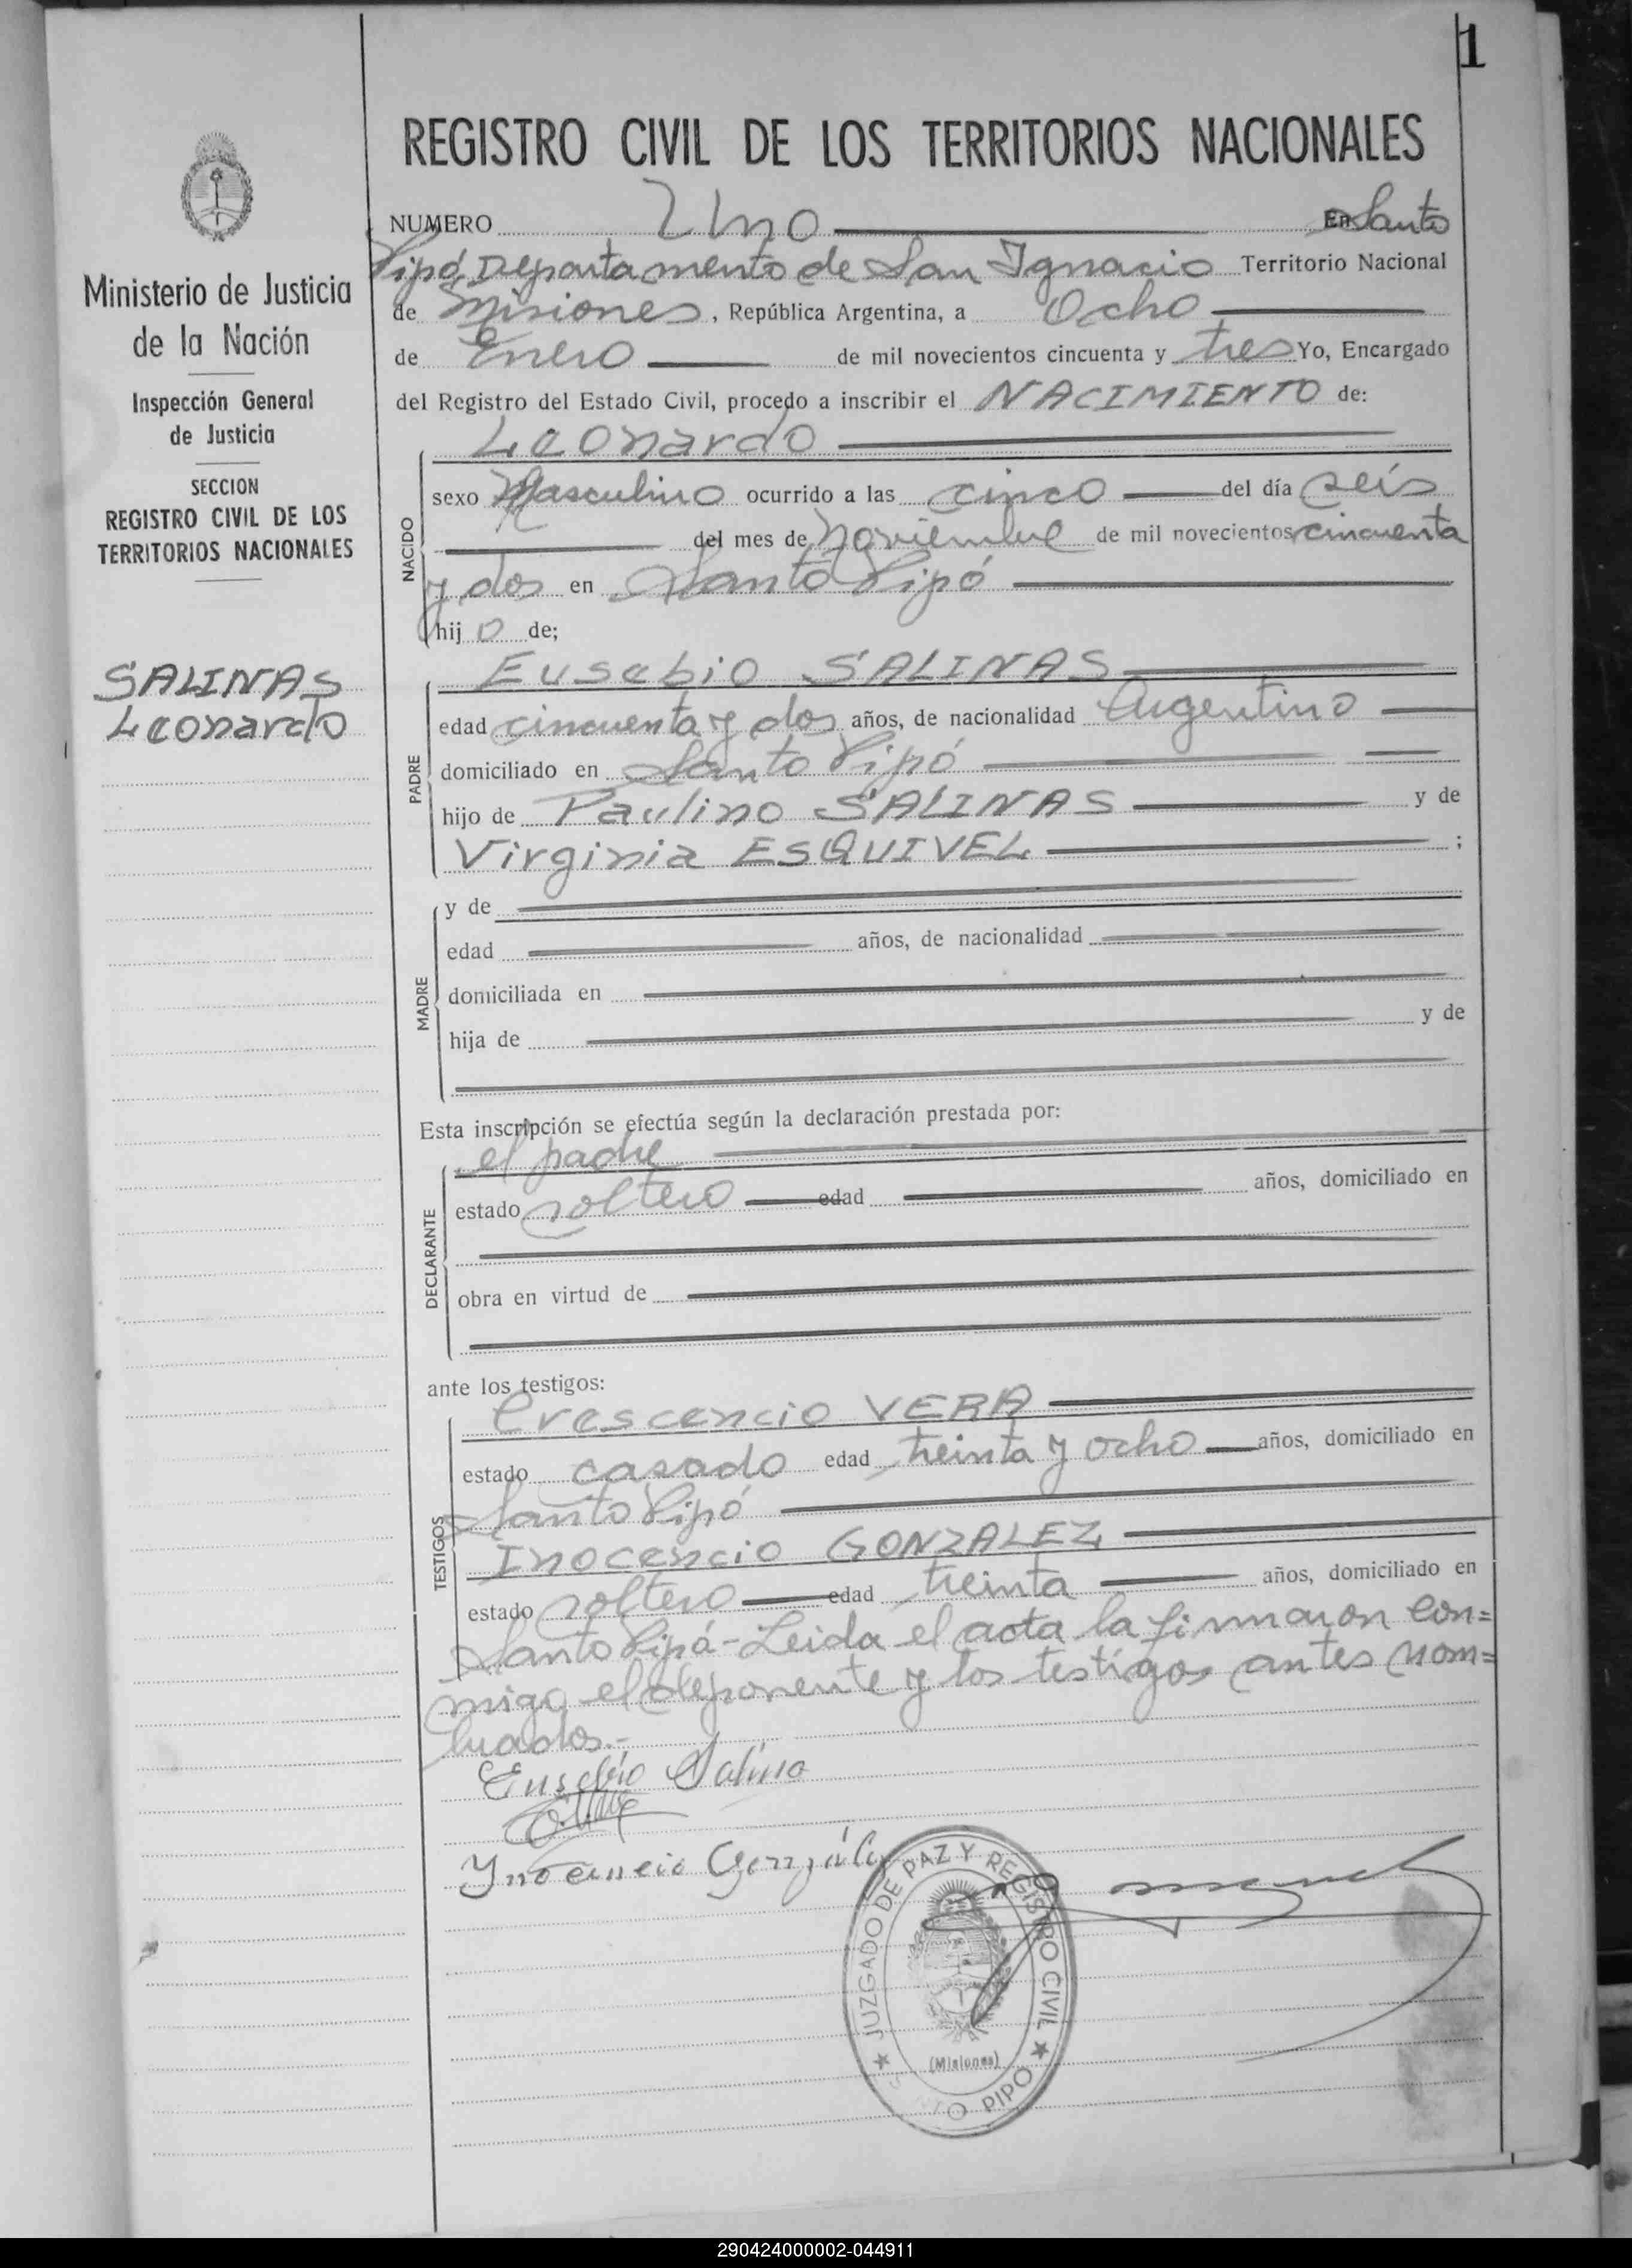 1
REGISTRO CIVIL DE LOS TERRITORIOS NACIONALES
NUMERO Uno En Santo
Pipó, Departamento de San Ignacio Territorio Nacional
de Misiones, República Argentina, a Ocho
de Enero de mil novecientos cincuenta y tres Yo, Encargado
del Registro del Estado Civil, procedo a inscribir el NACIMIENTO de:
Leonardo
NACIDO
sexo Masculino ocurrido a las cinco del día seis
del mes de Noviembre de mil novecientos cincuenta
y dos en Santo Pipó
hij o de;
Eusebio SALINAS
PADRE
edad cincuenta y dos años, de nacionalidad Argentino
domiciliado en Santo Pipó
hijo de Paulino SALINAS y de
Virginia ESQUIVEL ;
MADRE
y de
edad años, de nacionalidad
domiciliada en
hija de y de
Esta inscripción se efectúa según la declaración prestada por:
el padre
DECLARANTE
estado soltero edad años, domiciliado en
obra en virtud de
ante los testigos:
Crescencio VERA
TESTIGOS
estado casado edad treinta y ocho años, domiciliado en
Santo Pipó
Inocencio GONZALEZ
estado soltero edad treinta años, domiciliado en
Santo Pipó - Leida el acta la firmaron con=
migo el deponente y los testigos antes nom=
brados.-
Eusebio Salina
Ynocencio González
JUZGADO DE PAZ Y REGISTRO CIVIL
(Misiones)
PIPO
Ministerio de Justicia
de la Nación
Inspección General
de Justicia
SECCION
REGISTRO CIVIL DE LOS
TERRITORIOS NACIONALES
SALINAS
Leonardo
290424000002-044911